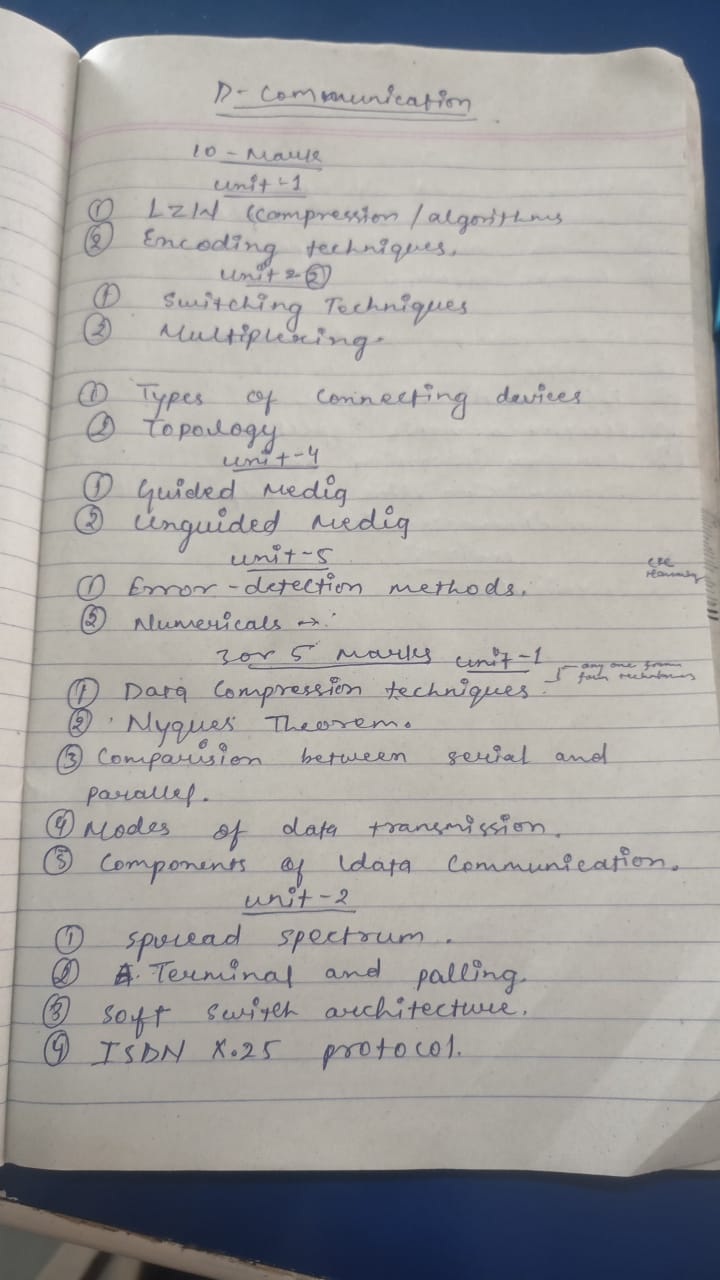 D- Communication
10 - Marks
unit-1
① LZW (compression / algorithms
② Encoding techniques.
unit 2 ②
① Switching Techniques
② Multiplexing.
① Types of connecting devices
② Topology
unit-4
① Guided Media
② Unguided Media
unit-5
① Error-detection methods.
② Numericals →
CRC
Hamming
3 or 5 marks unit-1
① Data Compression techniques. any one from
four techniques
② Nyques Theorem.
③ Comparision between serial and
parallel.
④ Modes of data transmission.
⑤ Components of data Communication.
unit-2
① spread spectrum.
② Terminal and palling.
③ soft switch architecture.
④ ISDN X.25 protocol.